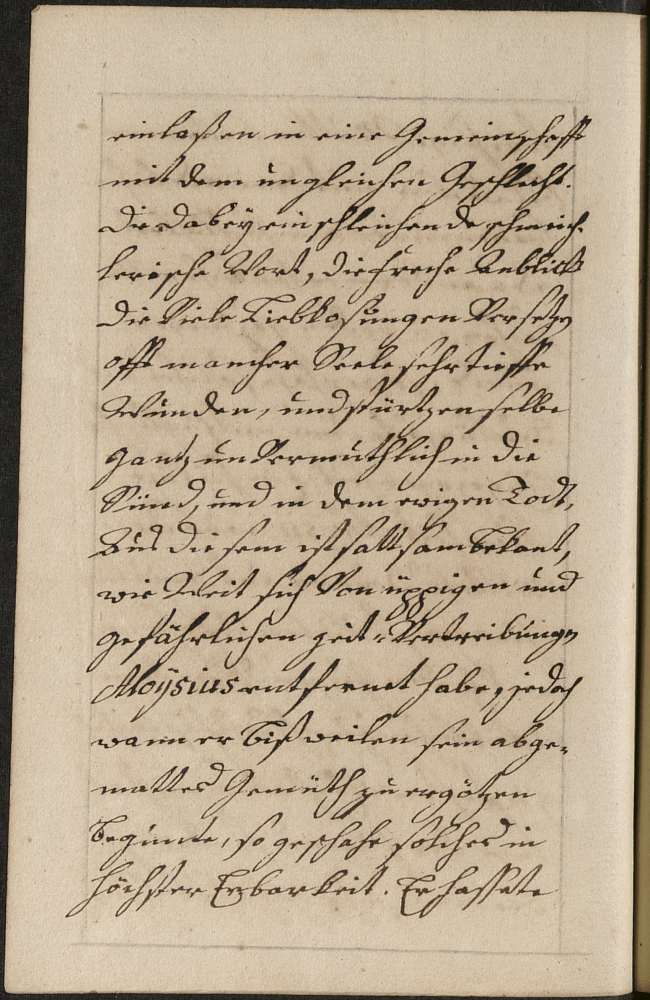 einlaßen in eine Gemeinschafft
mit dem ungleichen Geschlecht.
die dabey einschleichende schmeich-
lerische Wort, die freche Anblick
die Viele Liebkosungen Versetzen
offt mancher Seele sehr tieffe
Wunden, und stürtzen selbe
gantz unVermuthlich in die
Sünd, und in dem ewigen Todt,
Aus diesem ist sattsam bekant,
wie Weit sich Von üppigen und
gefährlichen Zeit-Vertreibungen
Aloÿsius entfernet habe, jedoch
wann er bißweilen sein abge-
mattes Gemüth zu ergötzen
begunte, so geschahe solches in
höchster Erbarkeit. Er hassete